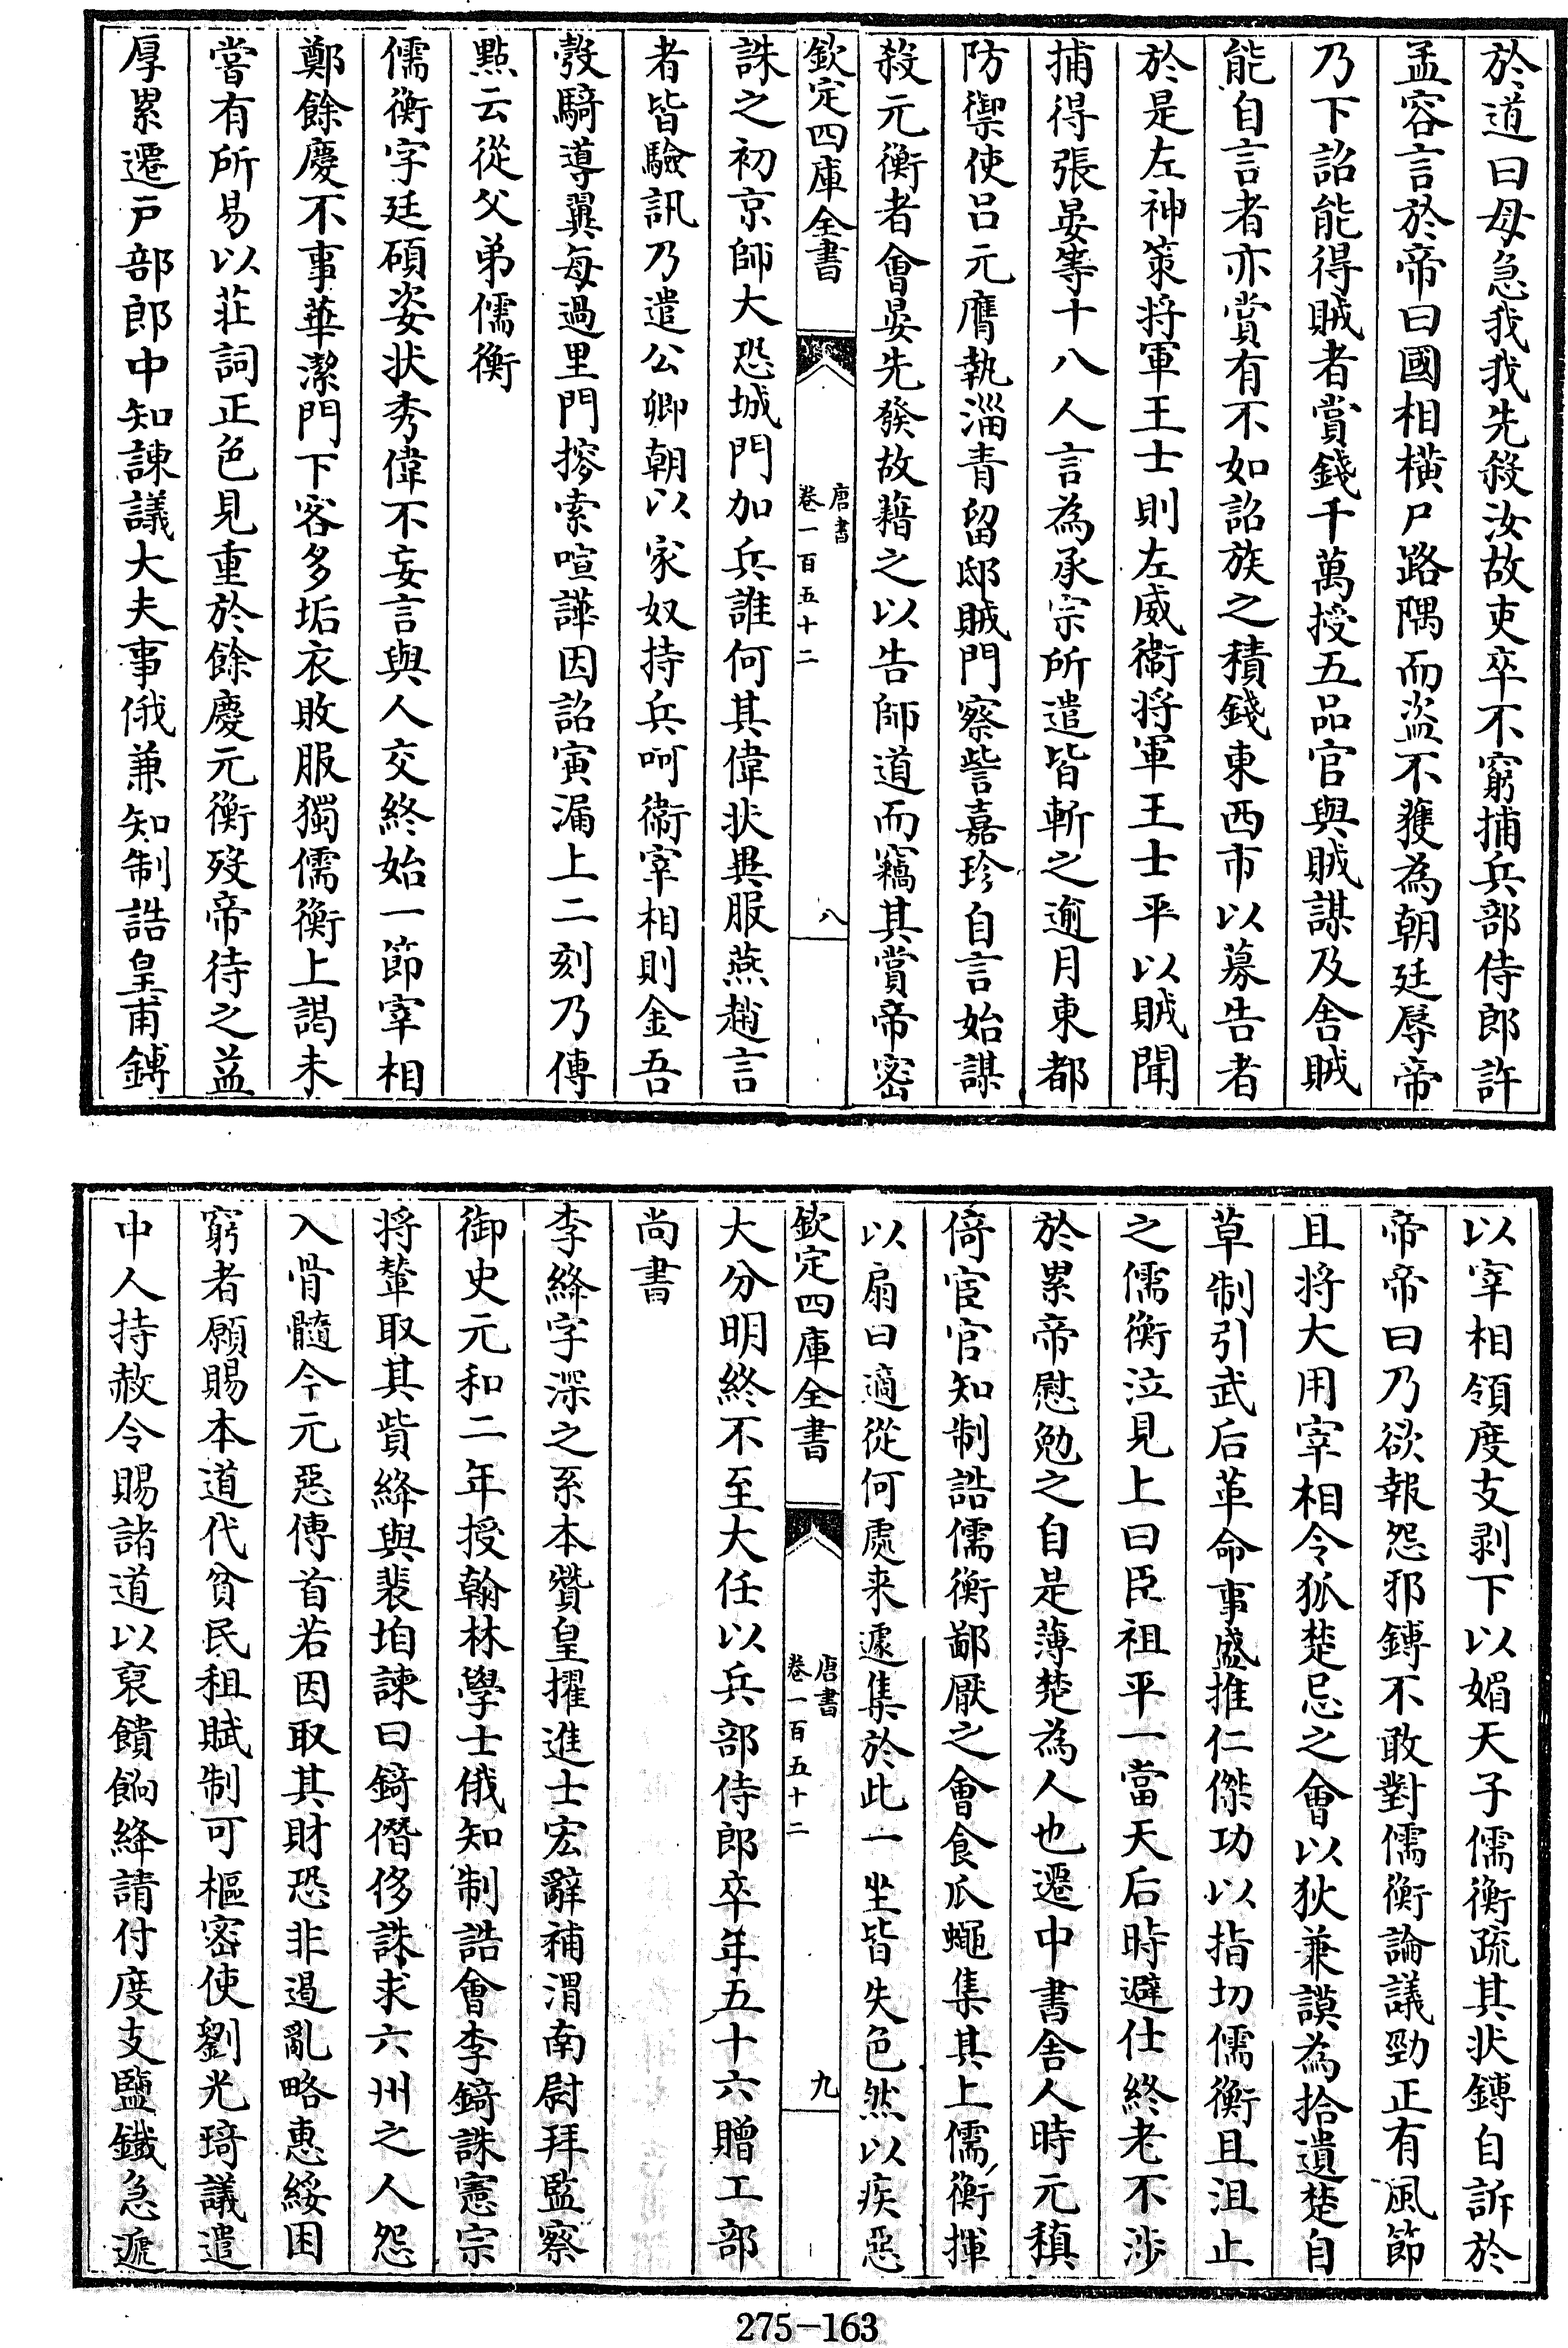 於道曰毋急我我先殺汝故吏卒不窮捕兵部侍郎許
孟容言於帝曰國相橫尸路隅而盜不獲為朝廷辱帝
乃下詔能得賊者賞錢千萬授五品官與賊謀及舍賊
能自言者亦賞有不如詔族之積錢東西市以募告者
於是左神策將軍王士則左威衞將軍王士平以賊聞
捕得張晏等十八人言為承宗所遣皆斬之逾月東都
防禦使呂元膺執淄青留邸賊門察訾嘉珍自言始謀
殺元衡者會晏先發故藉之以告師道而竊其賞帝密
欽定四庫全書
唐書
卷一百五十二
八
誅之初京師大恐城門加兵誰何其偉狀異服燕趙言
者皆驗訊乃遣公卿朝以家奴持兵呵衞宰相則金吾
彀騎導翼每過里門搜索喧譁因詔寅漏上二刻乃傳
點云從父弟儒衡
儒衡字廷碩姿狀秀偉不妄言與人交終始一節宰相
鄭餘慶不事華潔門下客多垢衣敗服獨儒衡上謁未
嘗有所易以莊詞正色見重於餘慶元衡歿帝待之益
厚累遷户部郎中知諫議大夫事俄兼知制誥皇甫鎛
以宰相領度支剥下以媚天子儒衡疏其狀鎛自訴於
帝帝曰乃欲報怨邪鎛不敢對儒衡論議勁正有風節
且將大用宰相令狐楚忌之會以狄兼謨為拾遺楚自
草制引武后革命事盛推仁傑功以指切儒衡且沮止
之儒衡泣見上曰臣祖平一當天后時避仕終老不涉
於累帝慰勉之自是薄楚為人也遷中書舍人時元稹
倚宦官知制誥儒衡鄙厭之會食瓜蠅集其上儒衡揮
以扇曰適從何處来遽集於此一坐皆失色然以疾惡
欽定四庫全書
唐書
卷一百五十二
九
大分明終不至大任以兵部侍郎卒年五十六贈工部
尚書
李絳字深之系本贊皇擢進士宏辭補渭南尉拜監察
御史元和二年授翰林學士俄知制誥會李錡誅憲宗
將輦取其貲絳與裴垍諫曰錡僭侈誅求六州之人怨
入骨髓今元惡傳首若因取其財恐非遏亂略惠綏困
窮者願賜本道代貧民租賦制可樞密使劉光琦議遣
中人持赦令賜諸道以裒饋餉絳請付度支鹽鐵急遞
275-163